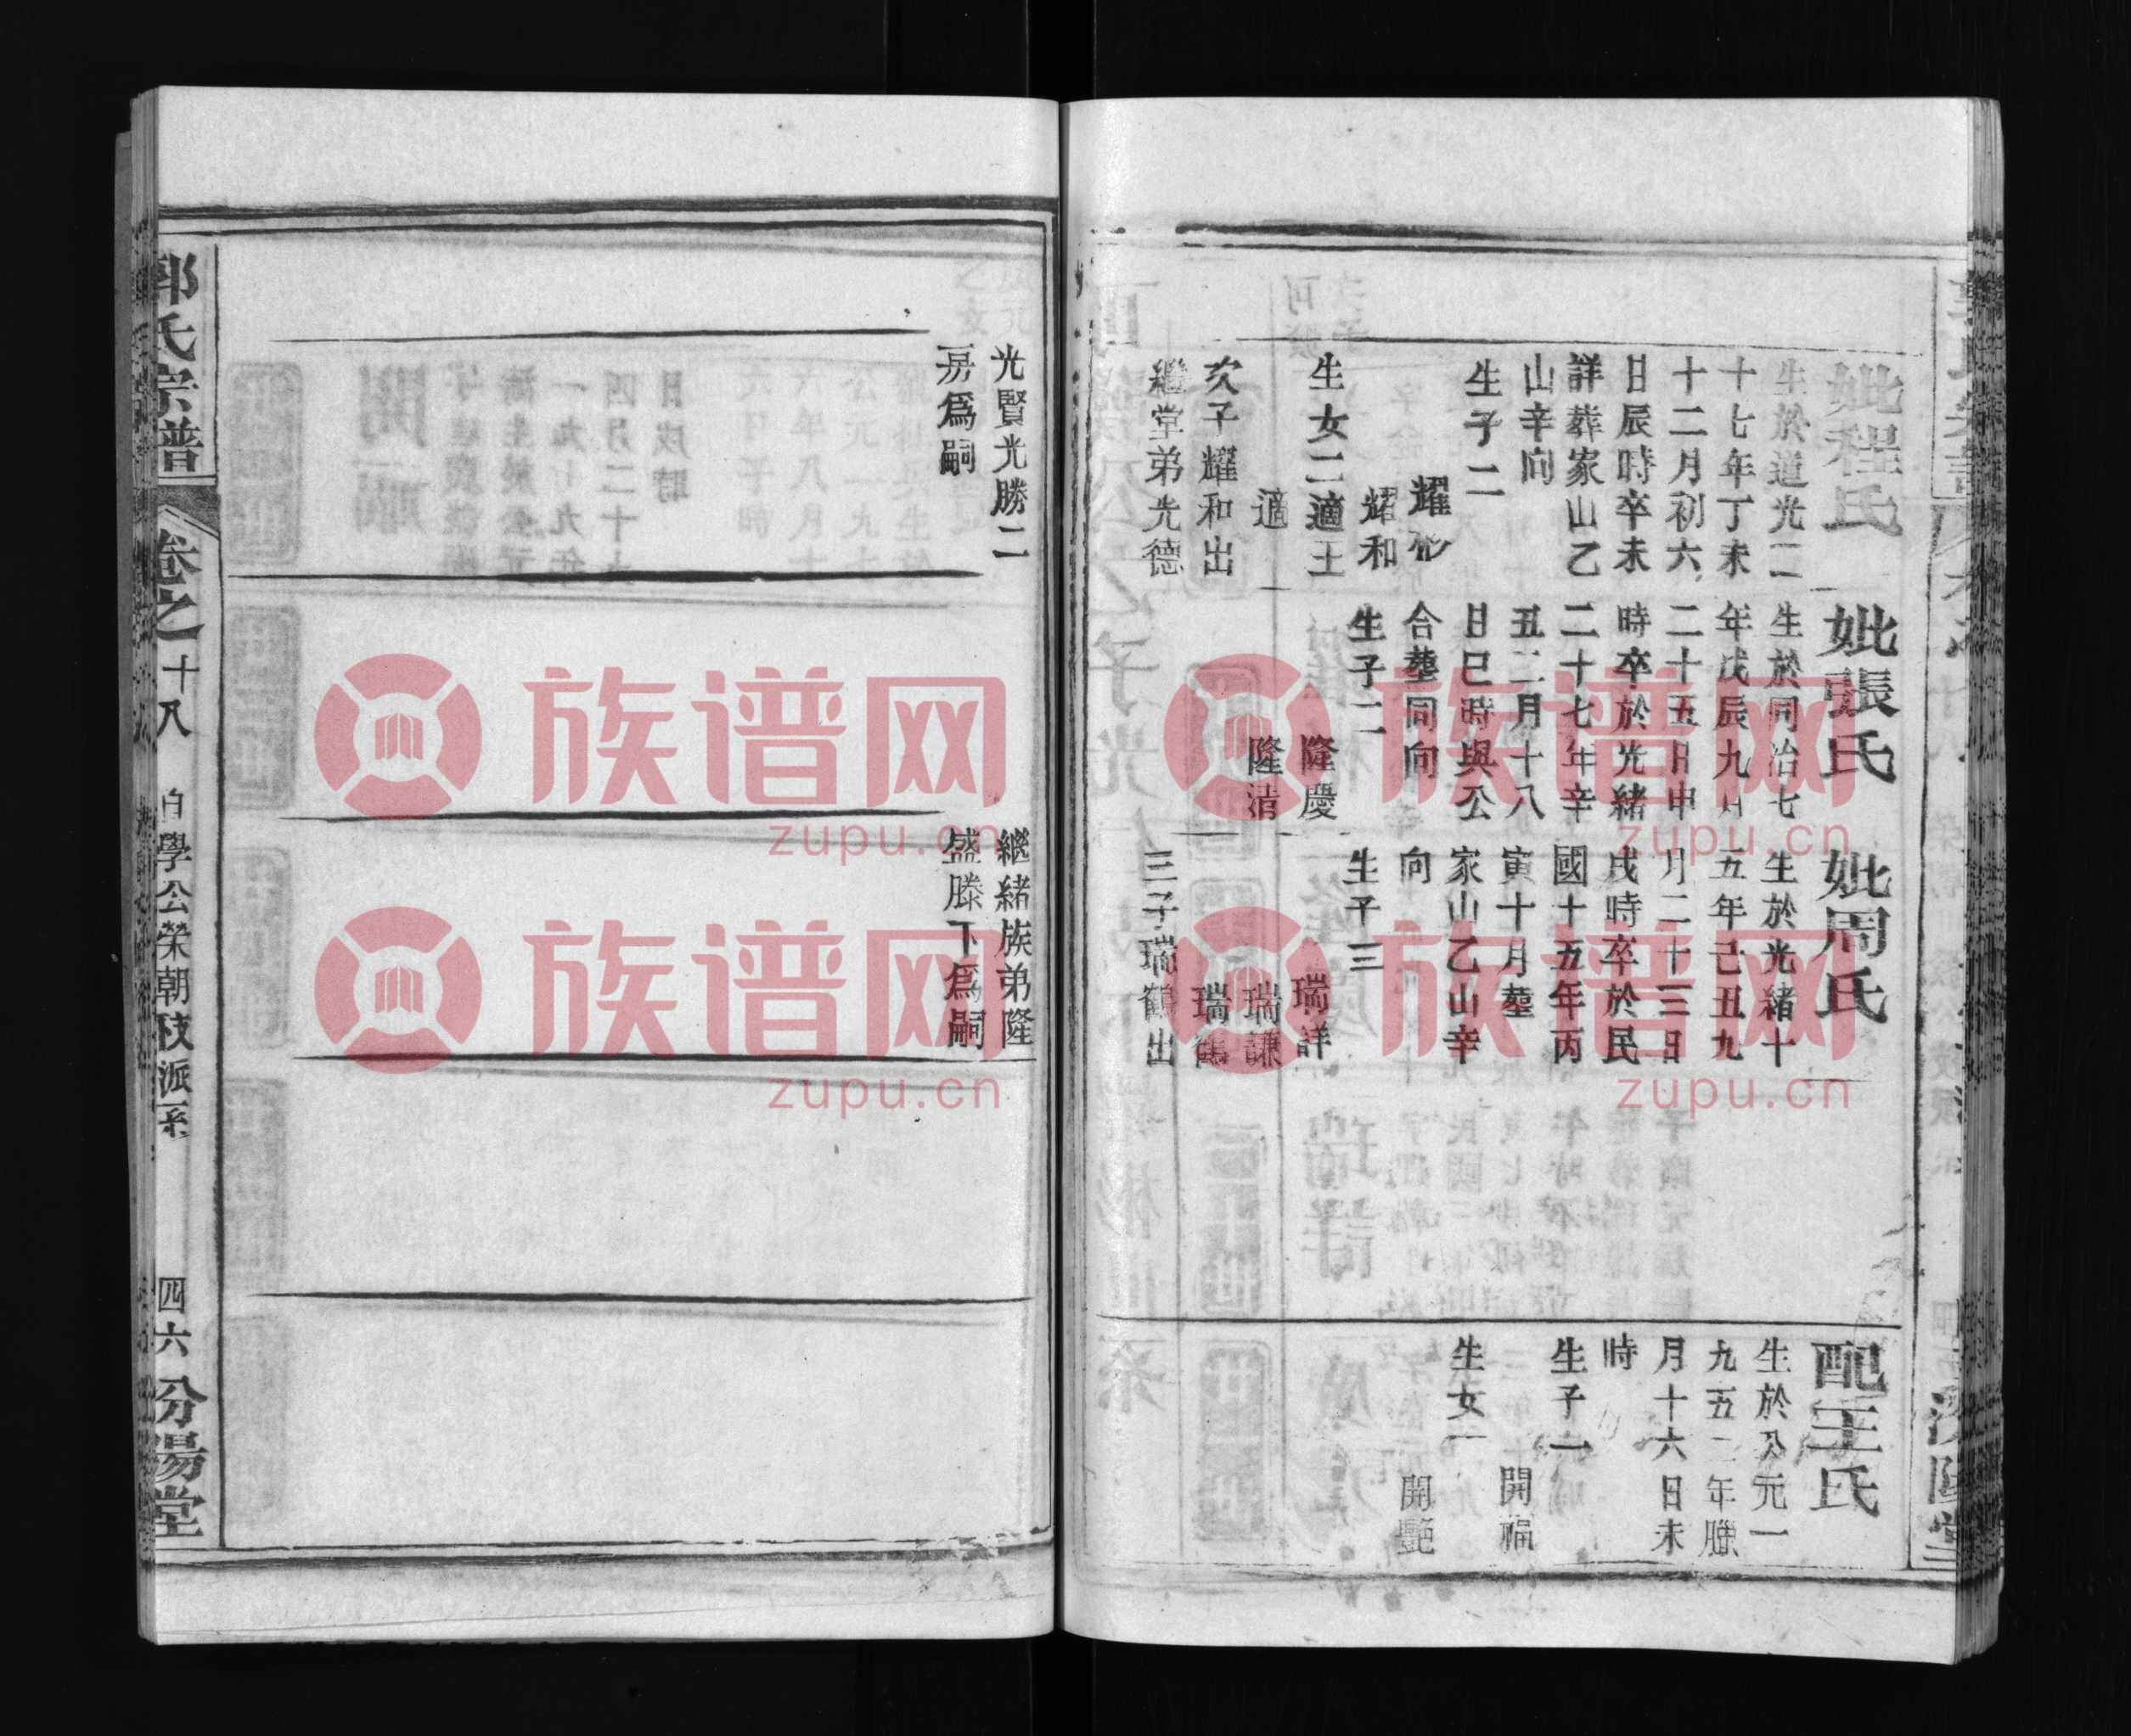 妣程氏
生於道光二
十七年丁未
十二月初六
日辰時卒未
詳葬家山乙
山辛向
生子二
耀彬
耀和
生女二適王
適
次子耀和出
繼堂弟光德
妣張氏
生於同治七
年戊辰九月
二十五日申
時卒於光緒
二十七年辛
丑二月十八
日巳時與公
合塟同向
生子二
隆慶
隆清
妣周氏
生於光緒十
五年己丑九
月二十三日
戌時卒於民
國十五年丙
寅十月塟
家山乙山辛
向
生子三
瑞詳
瑞謙
瑞鶴
三子瑞鶴出
配王氏
生於公元一
九五二年臘
月十六日未
時
生子一
開福
生女一
開艷
光賢光勝二
房爲嗣
繼緒族弟隆
盛滕下爲嗣
郭氏宗譜
卷之十八
自學公榮朝枝派系
四六
汾陽堂
族谱网
zupu.cn
族谱网
zupu.cn
族谱网
zupu.cn
族谱网
zupu.cn